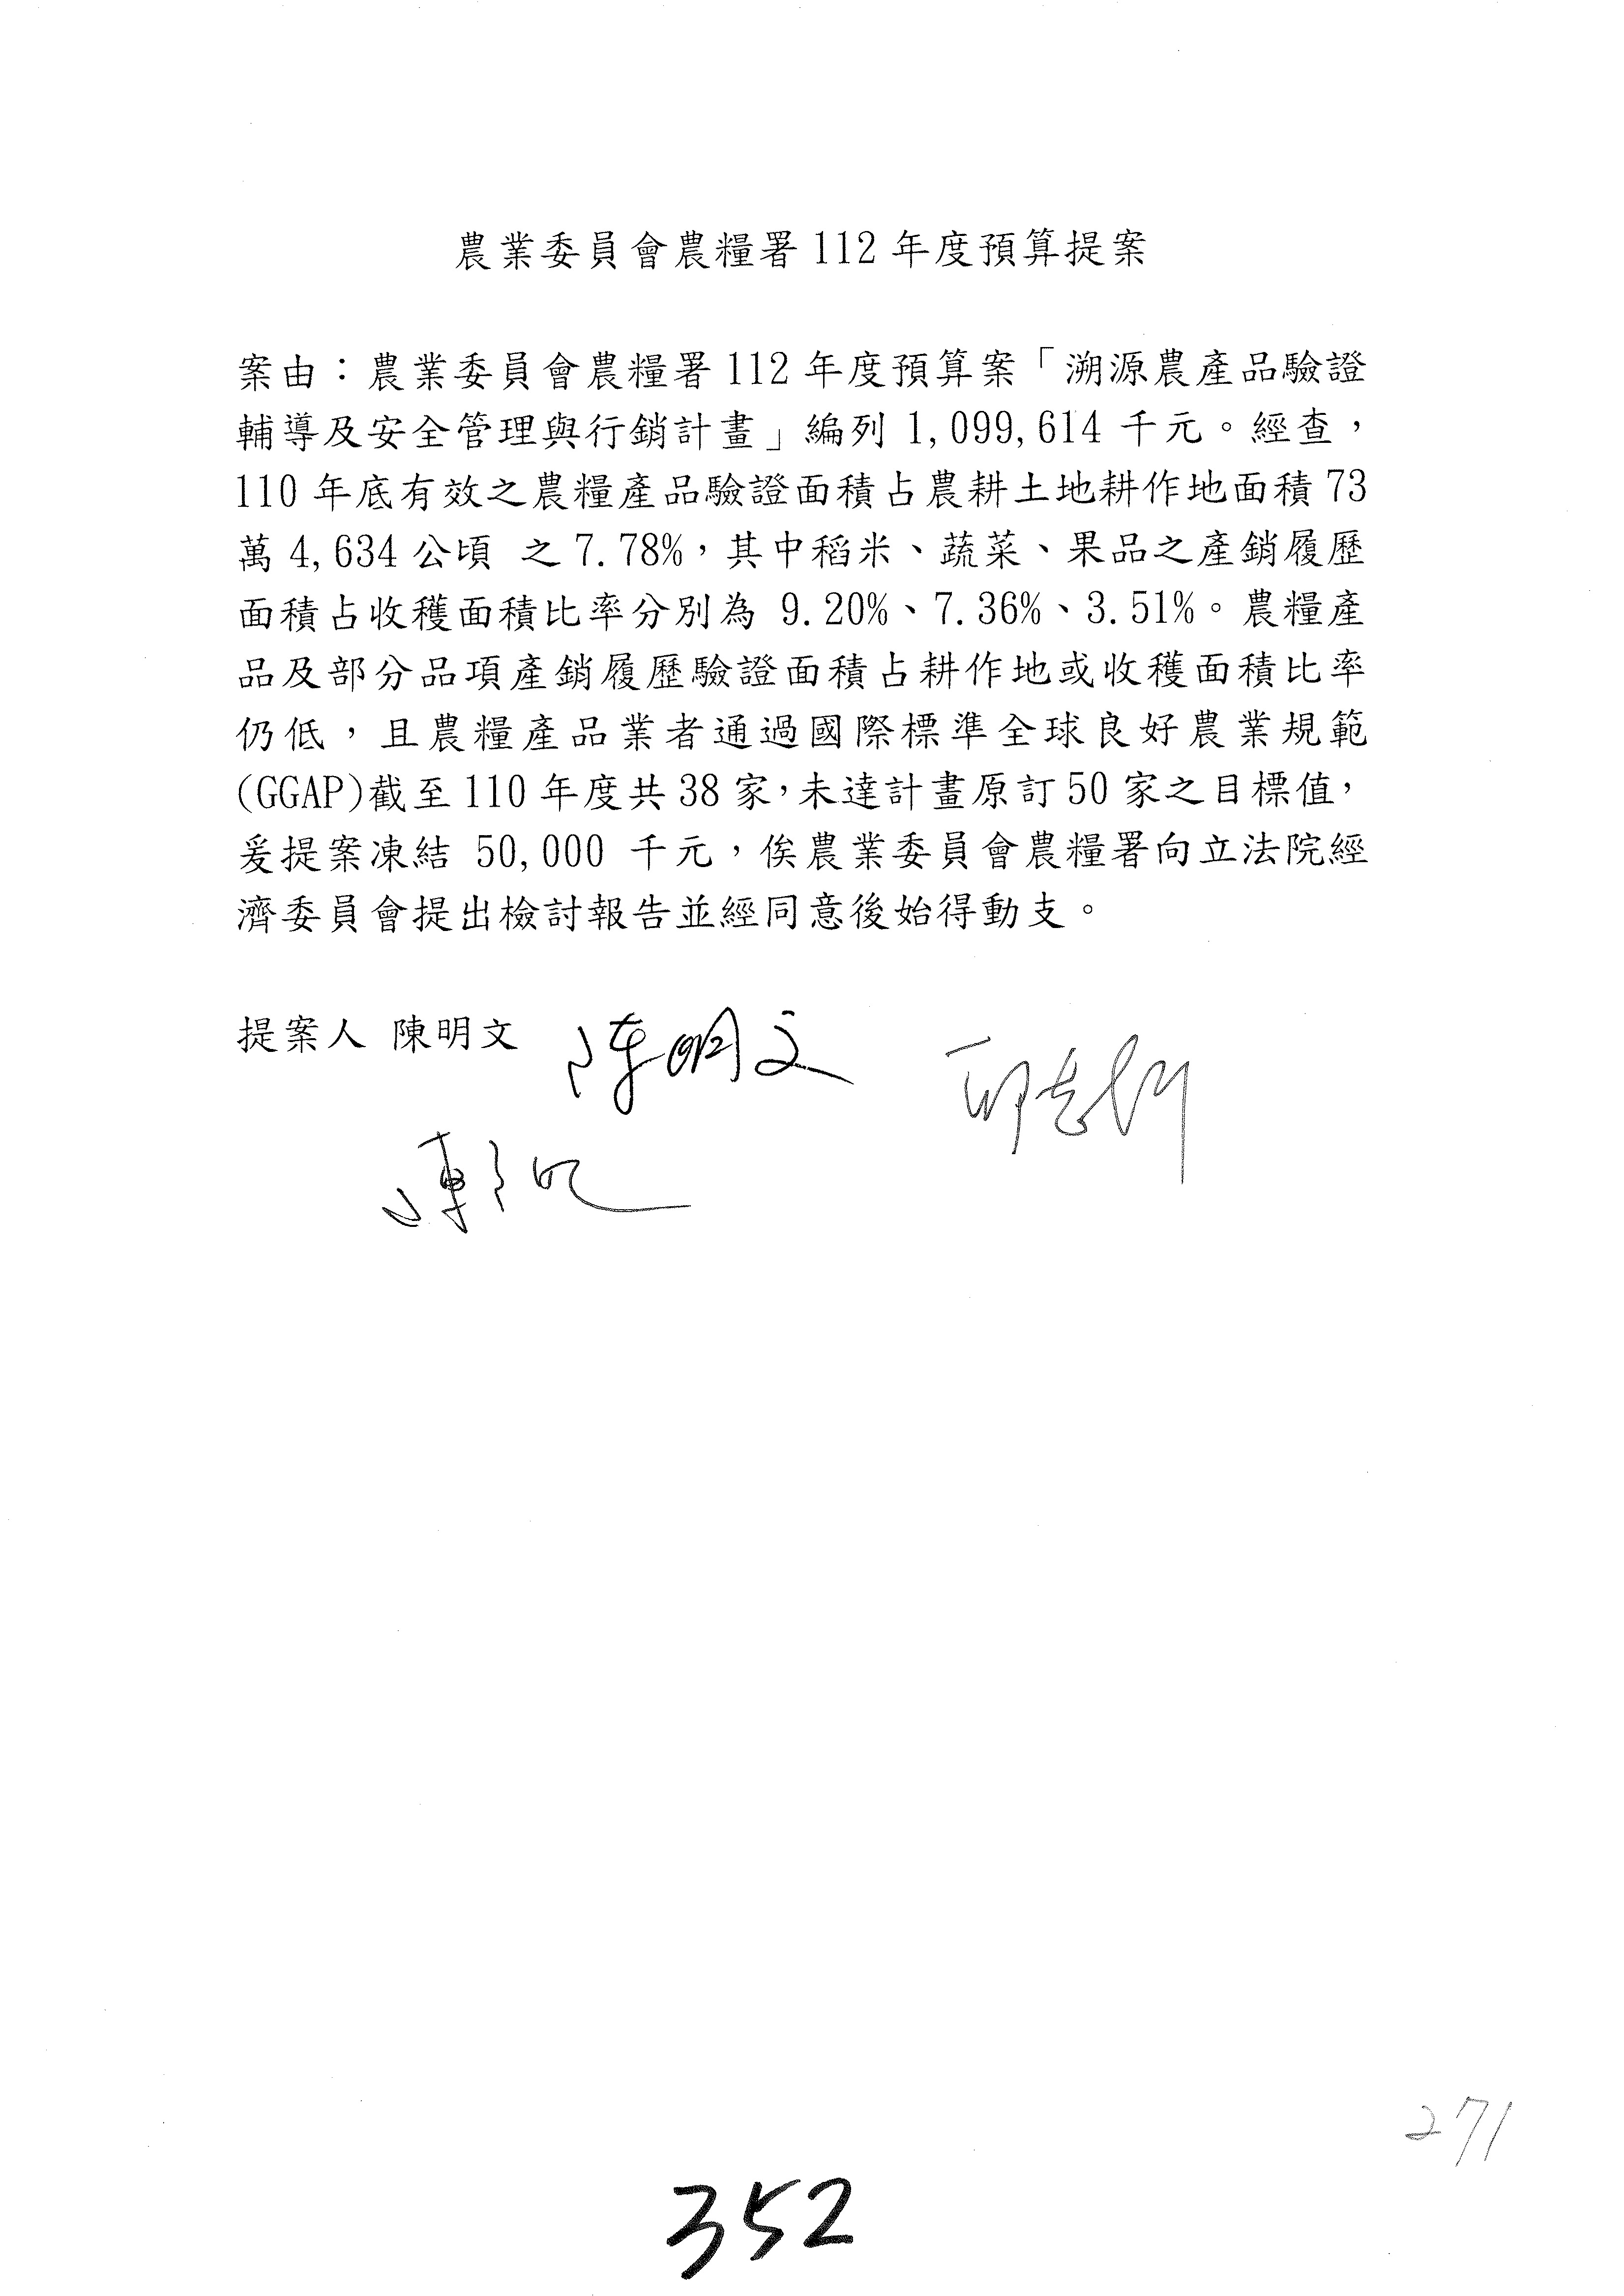 農業委員會農糧署112年度預算提案
案由：農業委員會農糧署112年度預算案「溯源農產品驗證
輔導及安全管理與行銷計畫」編列 1,099,614 千元。經查，
110 年底有效之農糧產品驗證面積占農耕土地耕作地面積 73
萬 4,634 公頃 之 7.78%，其中稻米、蔬菜、果品之產銷履歷
面積占收穫面積比率分別為 9.20%、7.36%、3.51%。農糧產
品及部分品項產銷履歷驗證面積占耕作地或收穫面積比率
仍低，且農糧產品業者通過國際標準全球良好農業規範
(GGAP)截至 110 年度共 38 家，未達計畫原訂 50 家之目標值，
爰提案凍結 50,000 千元，俟農業委員會農糧署向立法院經
濟委員會提出檢討報告並經同意後始得動支。
提案人 陳明文 陳明文
271
352